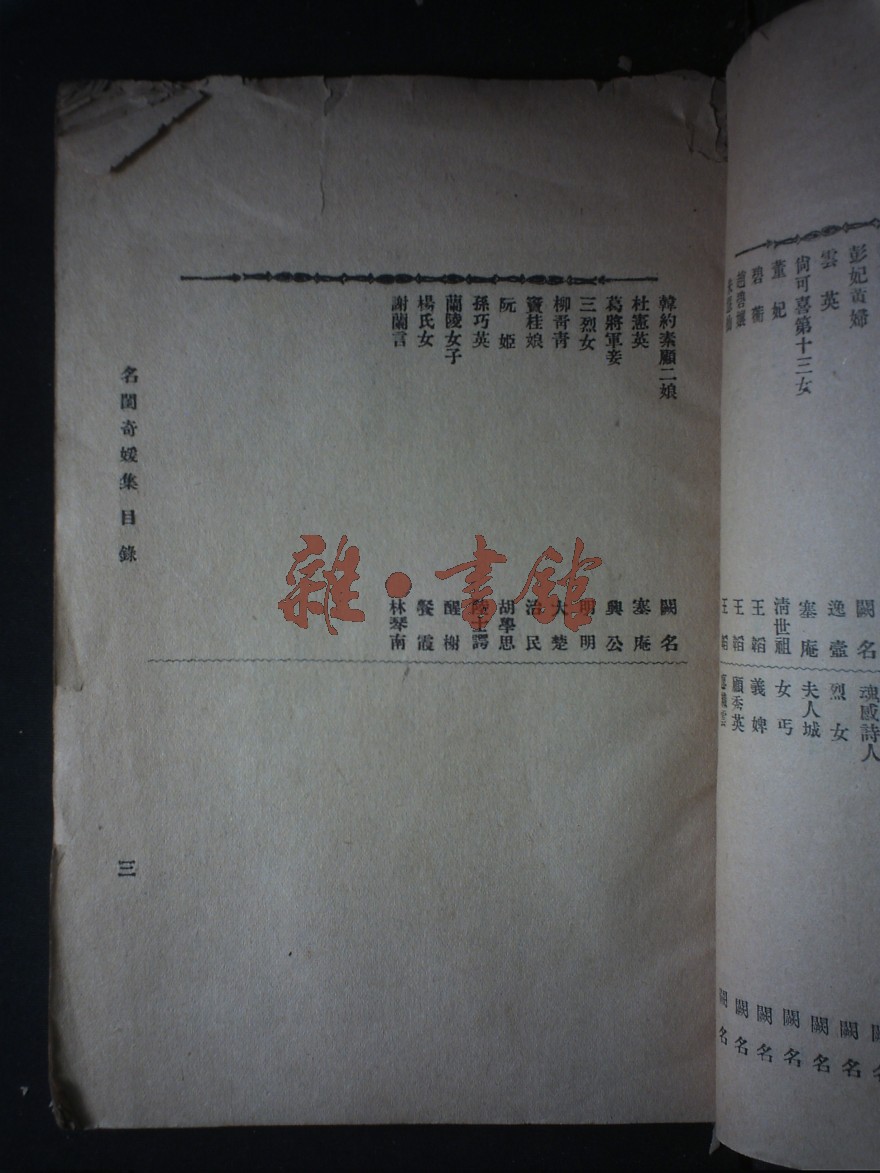 彭妃黃婦
闕名
雲英
逸壺
尙可喜第十三女
塞庵
董妃
清世祖
碧蘅
王韜
王韜
魂感詩人
烈女
闕名
夫人城
闕名
女丐
闕名
義婢
闕名
顧秀英
闕名
韓約素顧二娘
闕名
杜憲英
塞庵
葛將軍妾
興公
三烈女
明明
柳青青
大楚
竇桂娘
治民
阮姬
胡學思
孫巧英
陸士諤
蘭陵女子
醒樹
楊氏女
餐霞
謝蘭言
林琴南
名閨奇媛集目錄
三
雜·書館